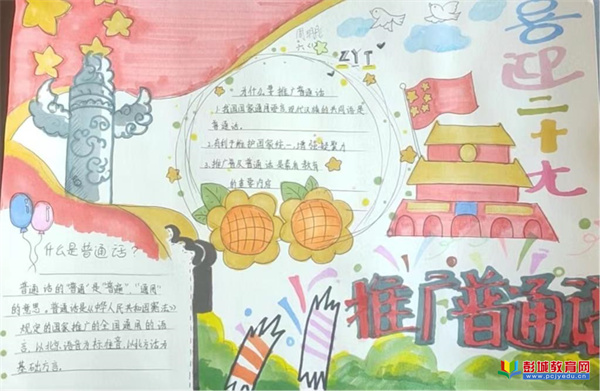 喜迎二十大
ZYT
为什么要推广普通话
1.我国国家通用语及现代汉语的共同语是
普通话。
2.有利于维护国家统一,增强凝聚力
3.推广普及普通话是素质教育
的重要内容
什么是普通话?
普通话的"普通"是"普遍"、"通用"
的意思。普通话是《中华人民共和国宪法》
规定的国家推广的全国通用的语
言,以北京语音为标准音,以北方话为
基础方言。
推广普通话
彭城教育网
www.pcjyedu.cn